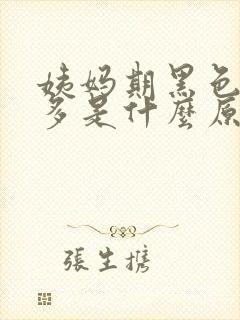 姨妈期黑色
多是什麼原
張生携